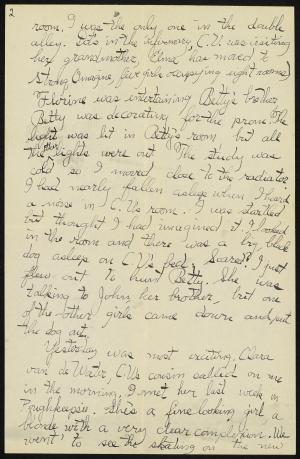 2
room. I was the only one in the double
alley. Dot's in the infirmary, C.V. was visiting
her grandmother, Edna has moved to
Strong (imagine, five girls occupying eight rooms)
Florine was entertaining Betty's brother
Betty was decorating for the prom. The
light was lit in Betty's room but all
the other lights were out. The study was
cold so I moved close to the radiator.
I had nearly fallen asleep when I heard
a noise in C.V.'s room. I was startled
but thought I had imagined it. I looked
in the room and there was a big black
dog asleep on C.V.'s bed. Scared? I just
flew out to hunt Betty. She was
talking to John, her brother, but one
of the other girls came down and put
the dog out.
Yesterday was most exciting. Clara
van de Water, C.V.'s cousin called on me
in the morning. I met her last week in
Poughkeepsie. She's a fine looking girl a
blonde with a very clear complexion. We
went to see the skating on the new